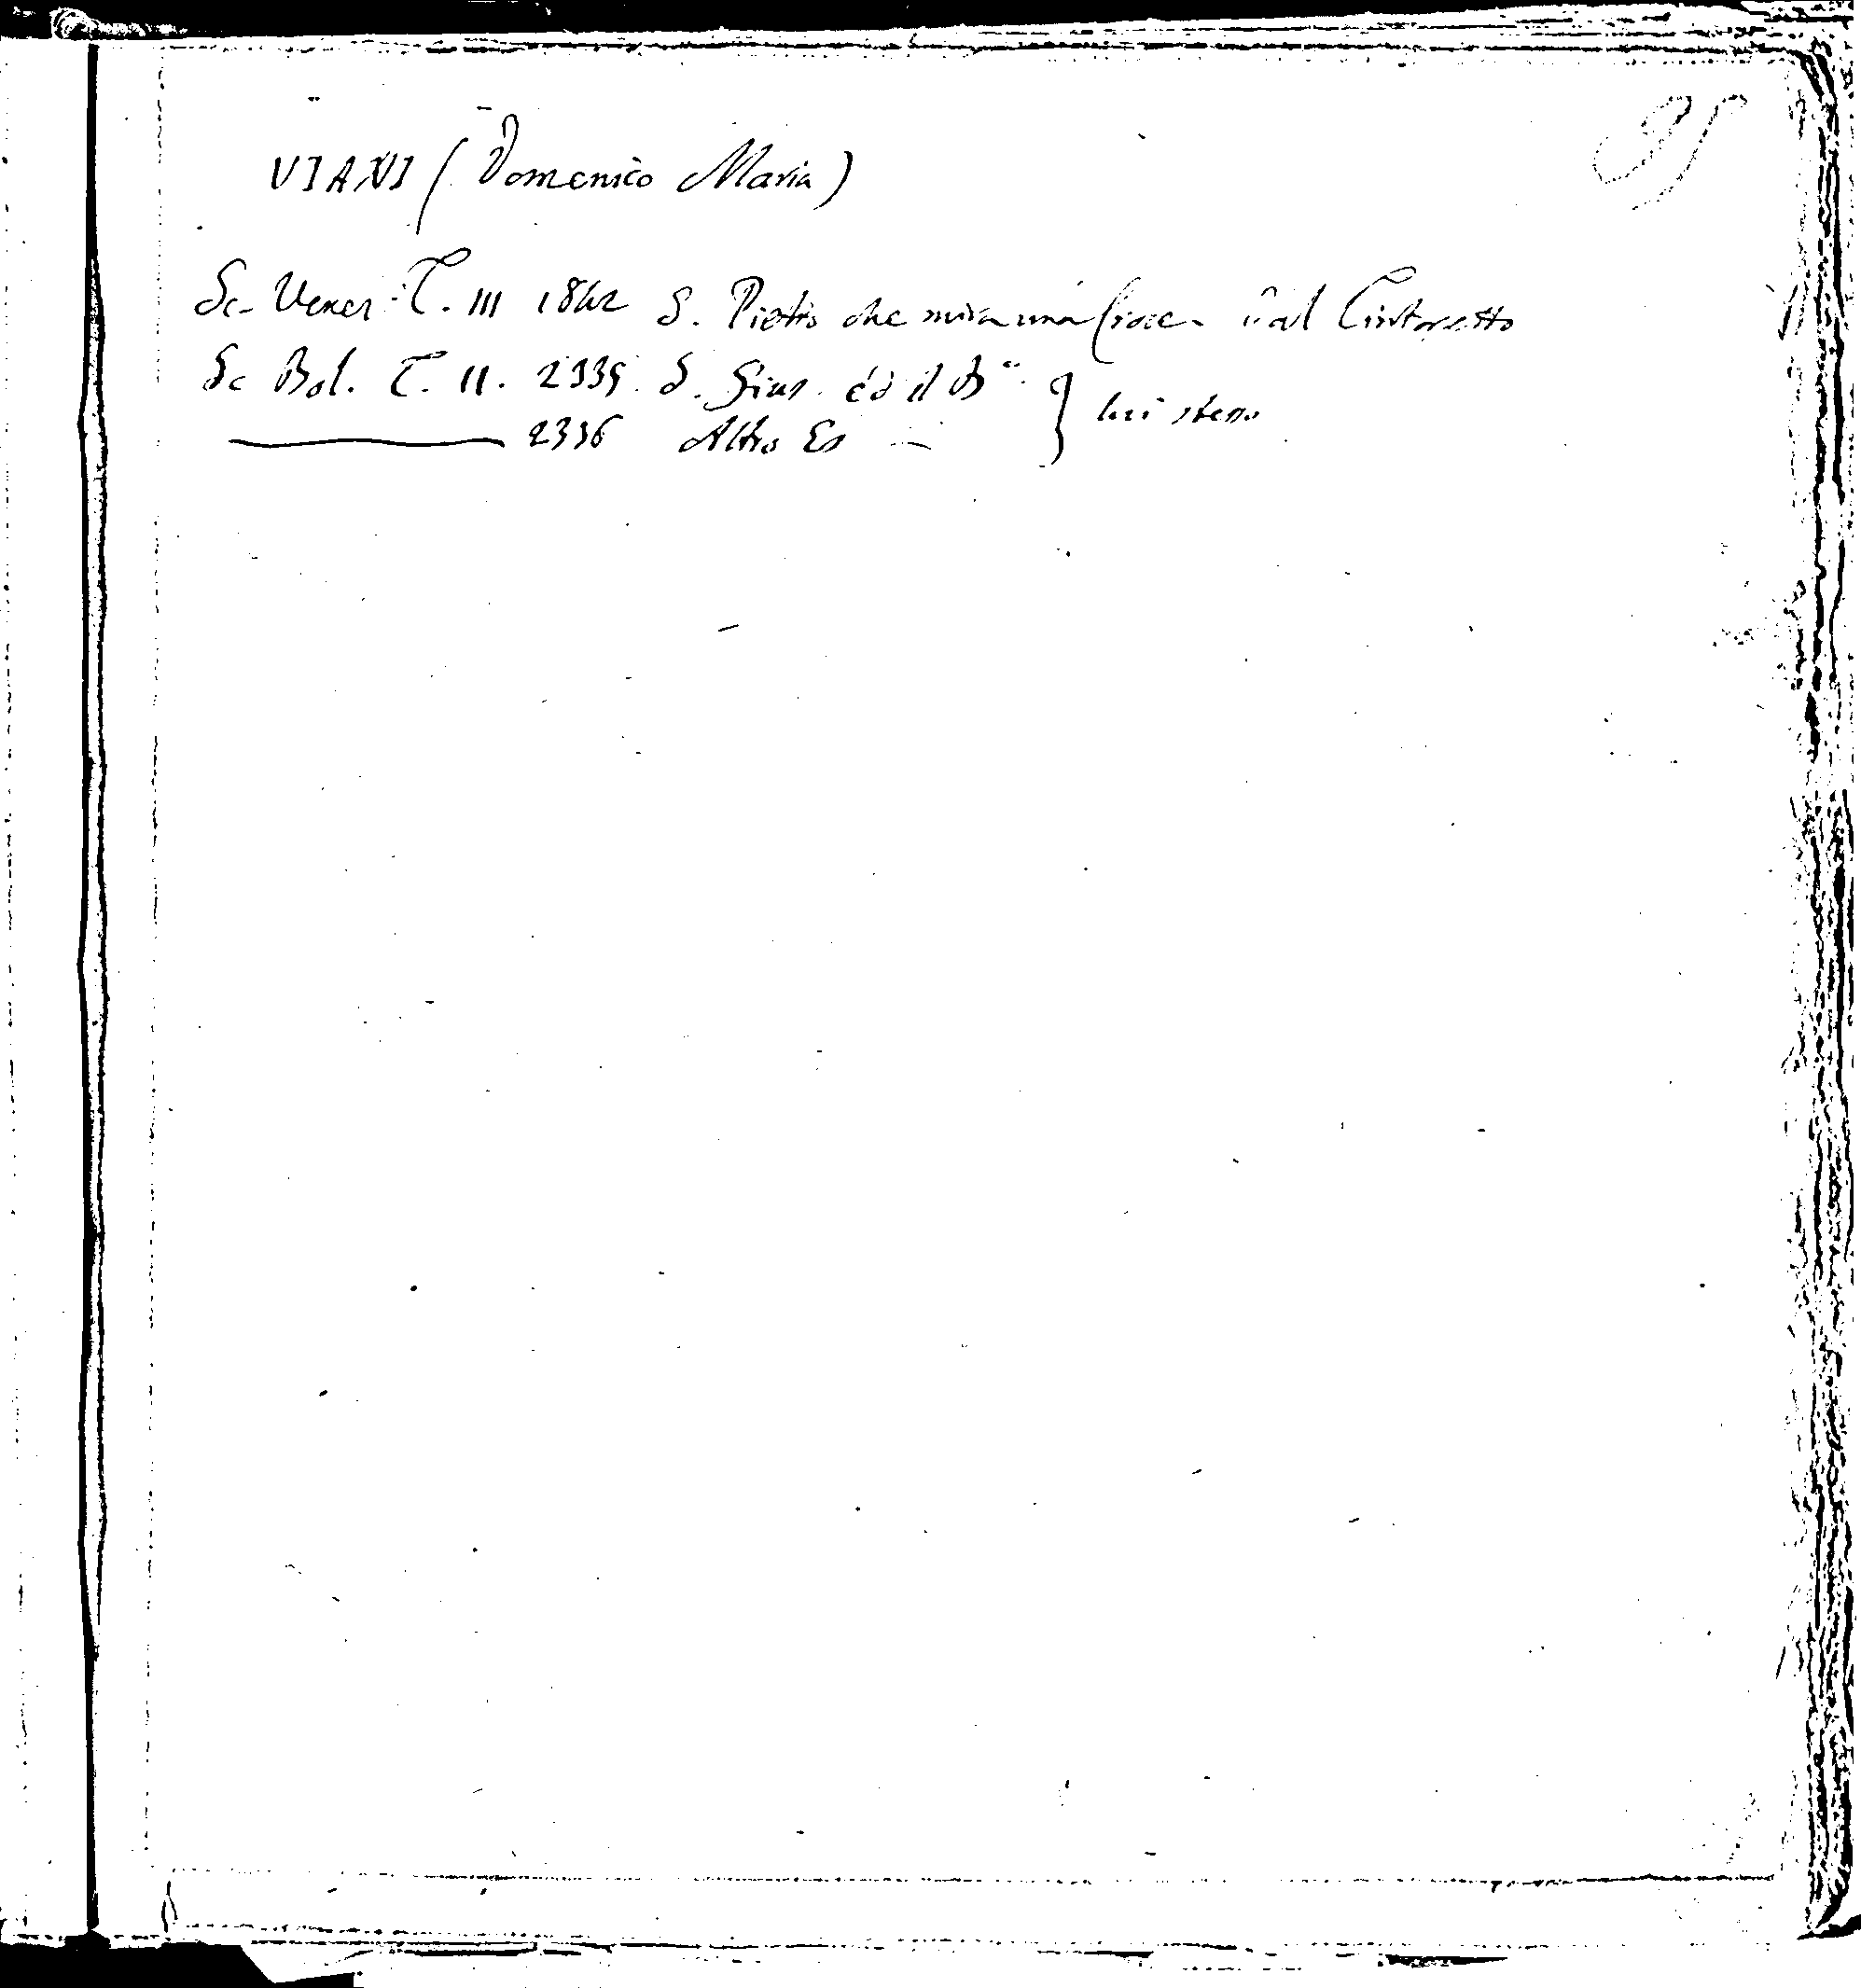 95
VIANI (Domenico Maria)
Sc. Venez. T. III 1842 S. Pietro che mira una Croce dal Tintoretto
Sc Bol. T. II. 2335. S. Gius. ed il B.º } lui stesso
2336 Altro Es